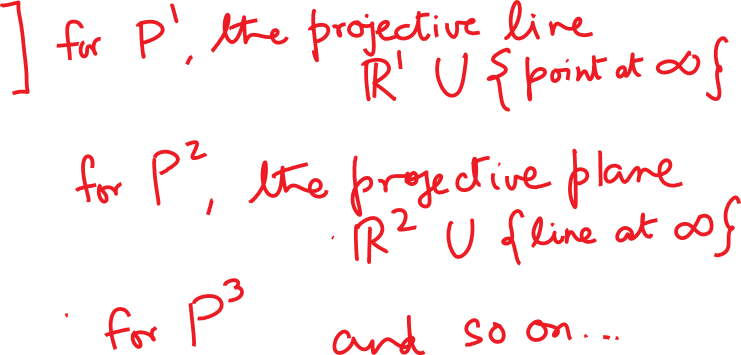 ] for P¹, the projective line
ℝ¹ ∪ {point at ∞}
for P², the projective plane
ℝ² ∪ {line at ∞}
for P³ and so on...